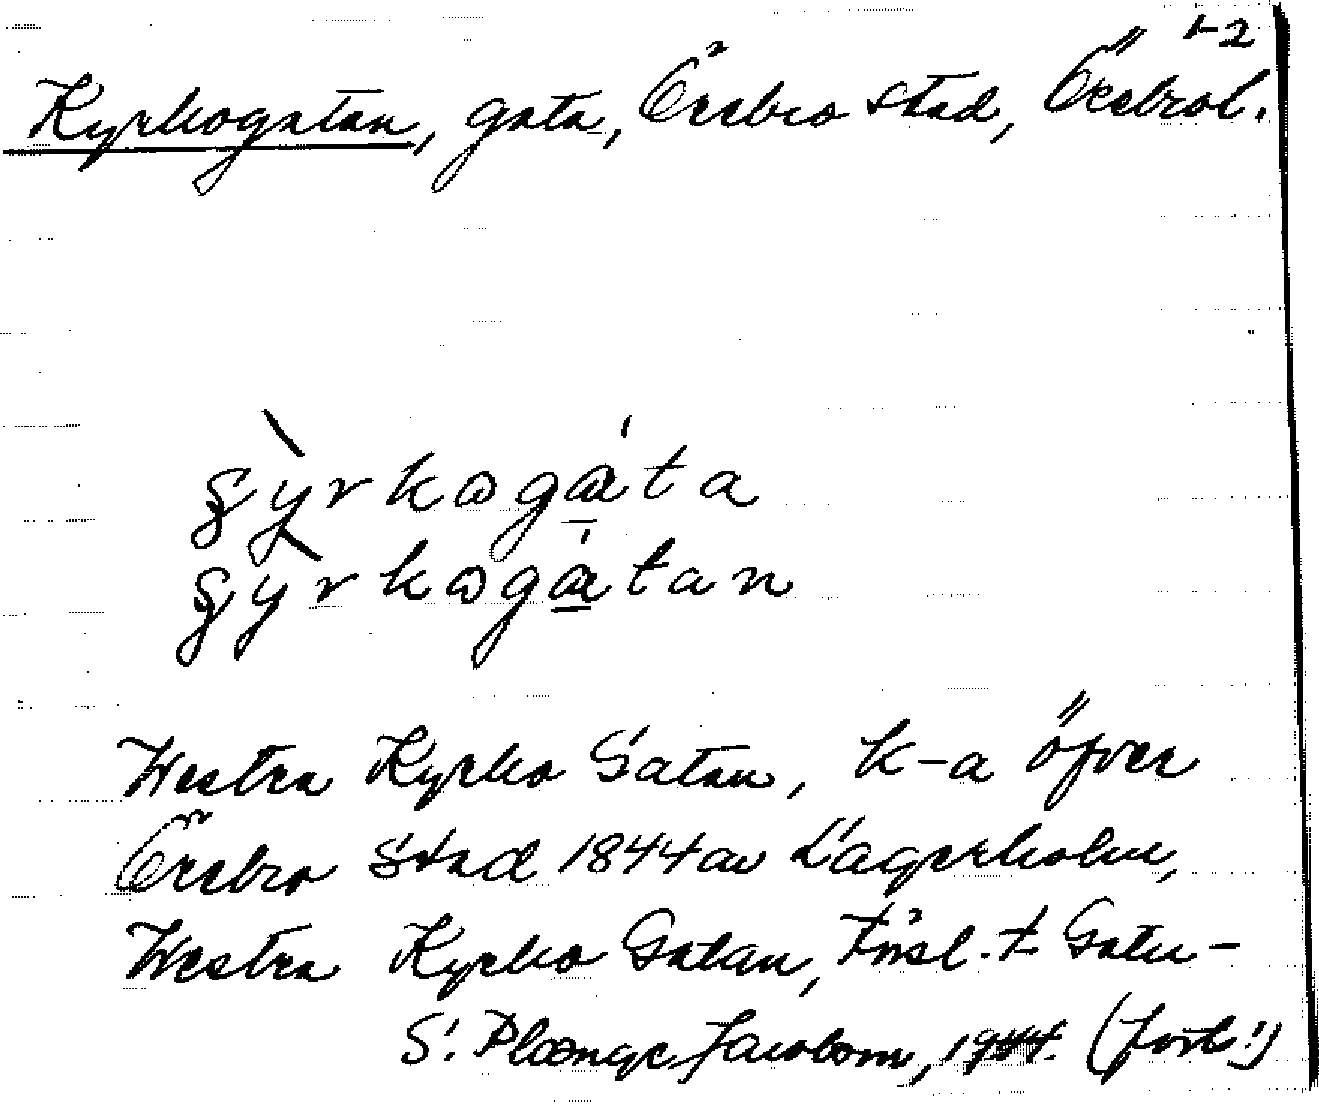 1-2
Kyrkogatan, gata, Örebro stad, Örebrol.
ʂỳrkωgáta
ʂỳrkωgátan
Westra Kyrko Gatan, k-a öfver
Örebro Stad 1844 av Lagerholm,
Westra Kyrko Gatan, Försl. t. Gatu-
S. Plænge Jacobson, 1944. (forts.)